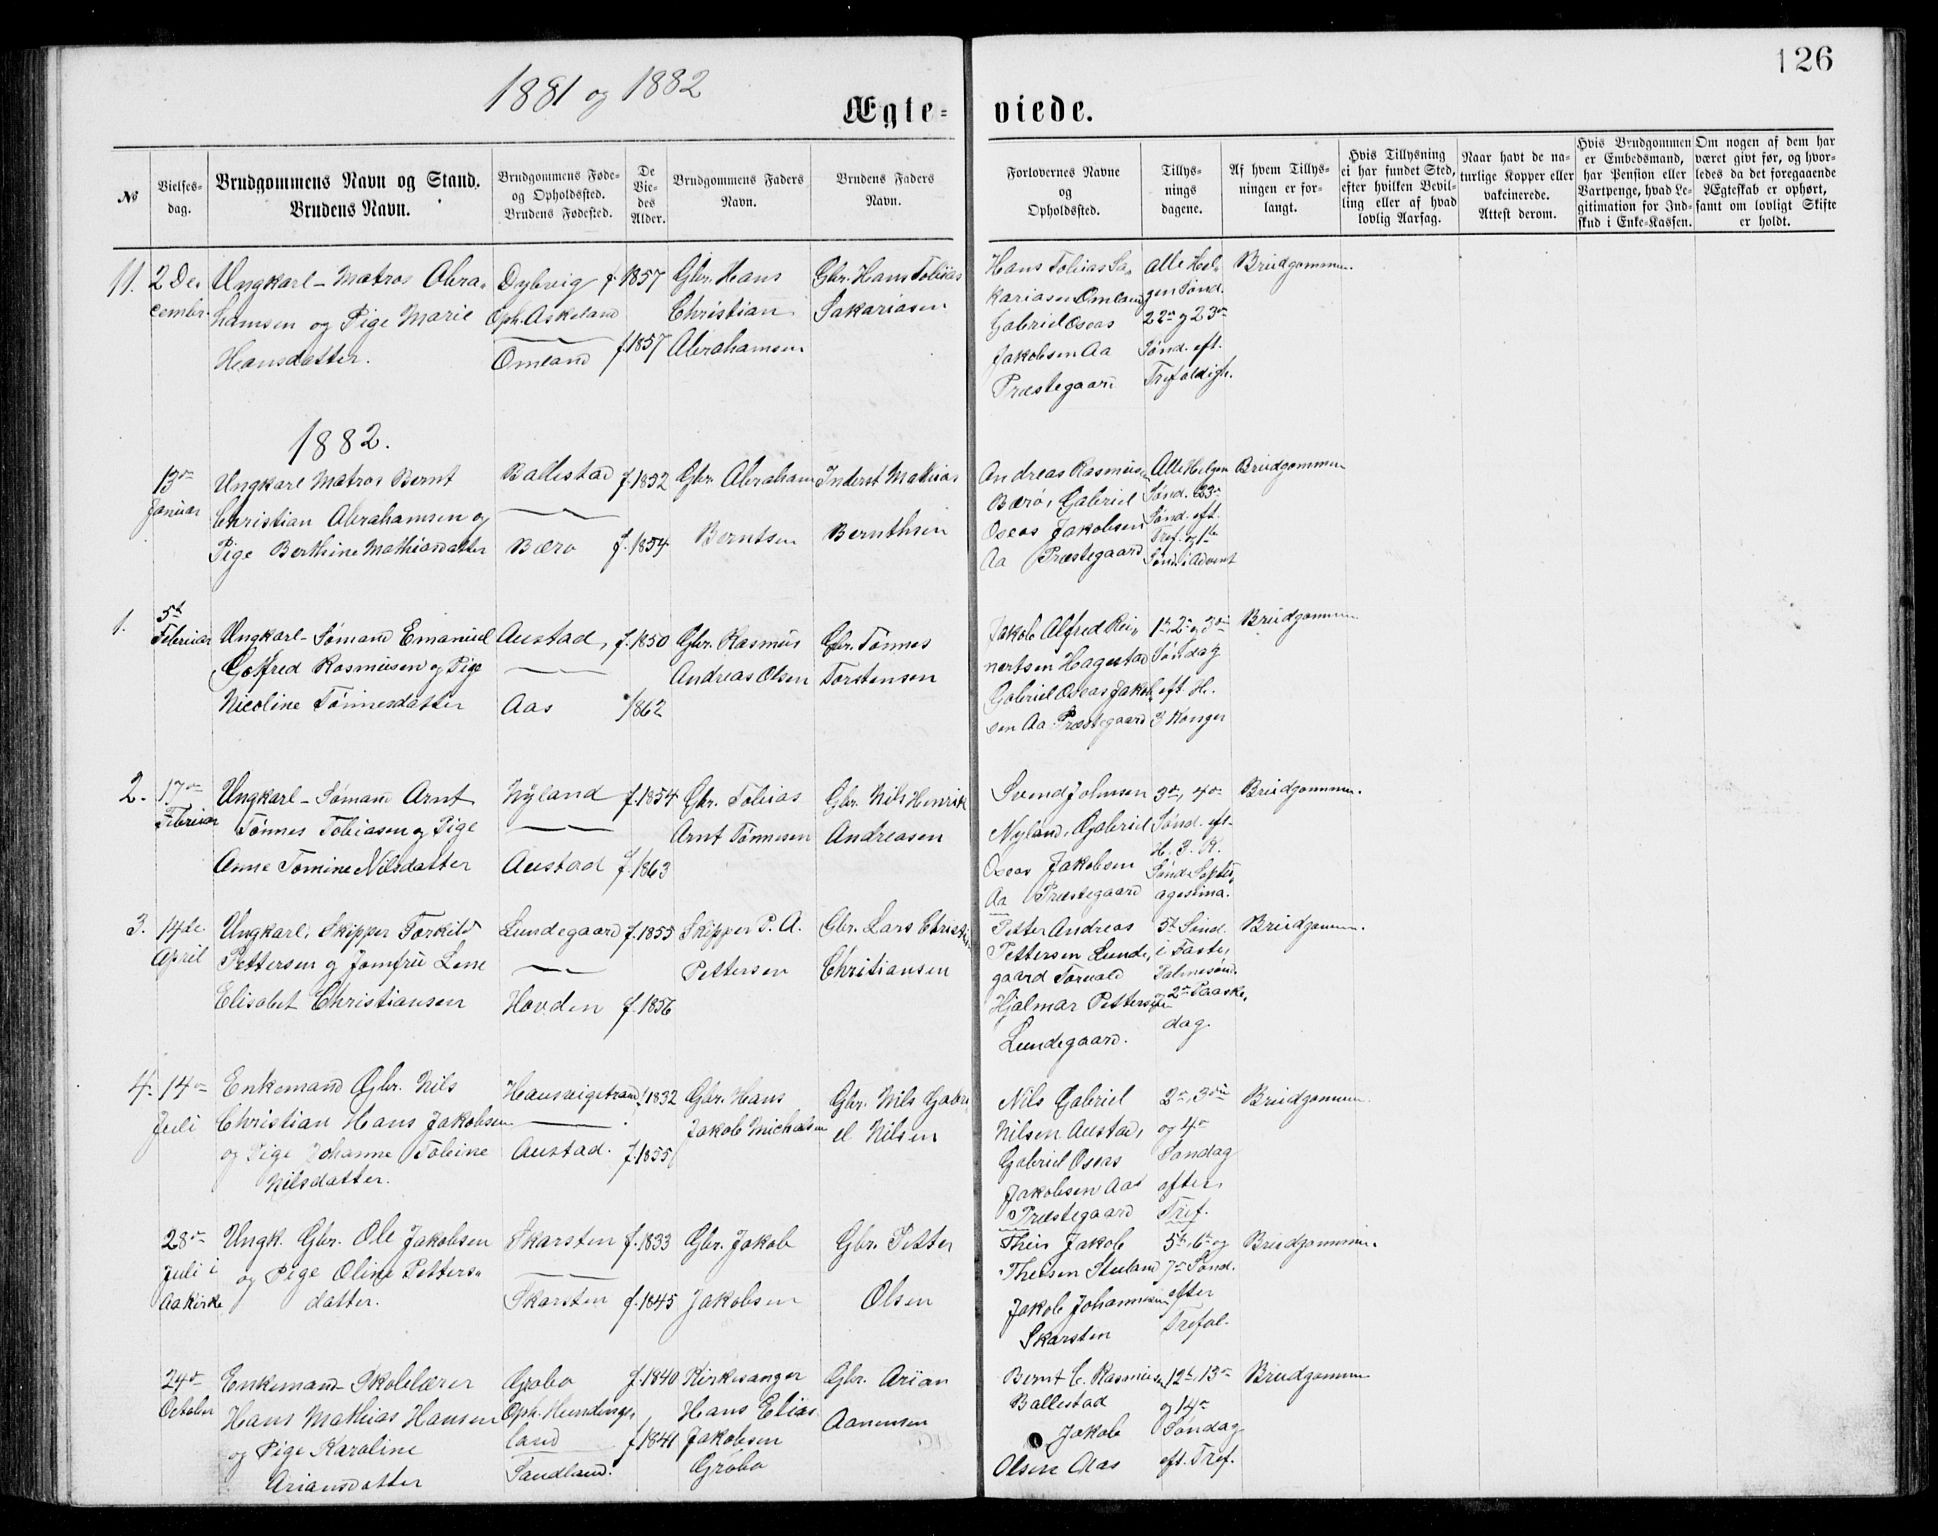 126
1881 og 1882
Ægte-
viede.
No
Vielses-
dag.
Brudgommens Navn og Stand.
Brudens Navn.
Brudgommens Føde-
og Opholdssted.
Brudens Fødested.
De
Vie-
des
Alder.
Brudgommens Faders
Navn.
Brudens Faders
Navn.
Forlovernes Navne
og
Opholdssted.
Tillys-
nings
dagene.
Af hvem Tillys-
ningen er for-
langt.
Hvis Tillysning
ei har fundet Sted,
efter hvilken Bevil-
ling eller af hvad
lovlig Aarsag.
Naar havt de na-
turlige Kopper eller
vakcinerede.
Attest derom.
Hvis Brudgommen
er Embedsmand,
har Pension eller
Vartpenge, hvad Le-
gitimation for Ind-
skud i Enke-Kassen.
Om nogen af dem har
været givt før, og hvor-
ledes da det foregaaende
Ægteskab er ophørt,
samt om lovligt Skifte
er holdt.
11. 2 De-
cembr.
Ungkarl - Matros Abra-
hamsen og Pige Marie
Hansdatter.
Dybvig
Oph. Askeland
Omland
f. 1857
f. 1857
Gbr. Hans
Christian
Abrahamsen
Gbr. Hans Tobias
Sakariasen
Hans Tobias Sa-
kariasen Omland
Gabriel Oseas
Jakobsen Aa
Præstegaard
Alle Hel-
gen Sønd.
22de og 23de
Sønd. eft.
Trefoldigh.
Brudgommen.
1882.
13de
Januar
Ungkarl Matros Bernt
Christian Abrahamsen og
Pige Berthine Mathiasdatter
Ballestad
Bærø
f. 1852
f. 1854
Gbr. Abraham
Berntsen
Inderst Mathias
Bernthsen
Andreas Rasmusen
Bærø, Gabriel
Oseas Jakobsen
Aa Præstegaard
Alle Helgen
Sønd. 23de
Sønd. eft.
Tref. og 1ste
Sønd. i Advent
Brudgommen
1. 5te
Februar
Ungkarl - Sømand Emanuel
Gotfred Rasmusen og Pige
Nicoline Tønnesdatter
Austad,
Aas
f. 1850
1862
Gbr. Rasmus
Andreas Olsen
Gbr. Tønnes
Torstensen
Jakob Alfred Rei-
nertsen Hagestad
Gabriel Oseas Jakob-
sen Aa Præstegaard
1ste, 2de og 3die
Søndag
eft. H.
3 Konger
Brudgommen
2. 17de
Februar
Ungkarl - Sømand Arnt
Tønnes Tobiasen og Pige
Anne Tomine Nilsdatter
Nyland
Austad
f. 1854
f. 1863
Gbr. Tobias
Arnt Tønnesen
Gbr. Nils Henrik
Andreasen
Svend Johnsen
Nyland, Gabriel
Oseas Jakobsen
Aa Præstegaard
3die, 4de
Sønd. eft.
H. 3. K.
Sønd. Septu-
agesima.
Brudgommen.
3. 14de
April
Ungkarl, Skipper Torkild
Pettersen og Jomfru Lene
Elisabet Christiansen
Lundegaard
Hovden
f. 1855
f. 1856
Skipper P. A.
Pettersen
Gbr. Lars Christian
Christiansen
Petter Andreas
Pettersen Lunde-
gaard Torvald
Hjalmar Pettersen
Lundegaard.
5te Sønd.
i Faste,
Palmesønd.
2den Paaske-
dag.
Brudgommen.
4. 14de
Juli
Enkemand Gbr. Nils
Christian Hans Jakobsen
og Pige Johanne Tobine
Nilsdatter.
Hausvigstrand
Austad.
1832
f. 1855
Gbr. Hans
Jakob Michalsen
Gbr. Nils Gabri-
el Nilsen
Nils Gabriel
Nilsen Austad,
Gabriel Oseas
Jakobsen Aa
Præstegaard
2den, 3die
og 4de
Søndag
efter
Tref.
Brudgommen.
28de
Juli i
Aa Kirke
Ungk. Gbr. Ole Jakobsen
og Pige Oline Petters-
datter.
Skarsten
Skarsten
f. 1833
f. 1845
Gbr. Jakob
Jakobsen
Gbr. Petter
Olsen
Theis Jakob
Theisen Stuland
Jakob Johannesen
Skarsten
5te, 6te og
7de Sønd.
efter
Trefol.
Brudgommen.
24de
October
Enkemand Skolelærer
Hans Mathias Hansen
og Pige Karoline
Ariansdatter
Grøbo
Oph. Hundings-
land
Sandland.
f. 1840
f. 1841
Kirkesanger
Hans Elias
Jakobsen
Grøbo
Gbr. Arian
Aanensen
Bernt C. Rasmusen
Ballestad
Jakob
Olsen Aas
12te, 13de
og 14de
Søndag
eft. Tref.
Brudgommen